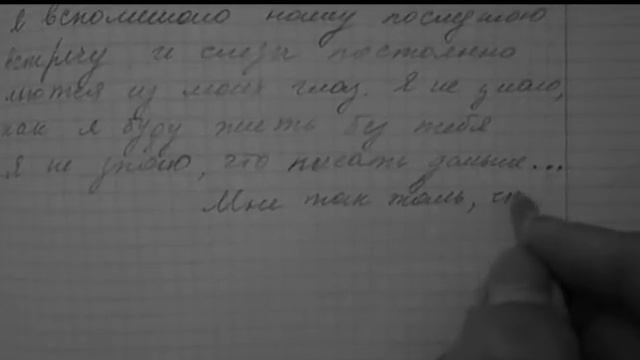 я вспоминаю нашу последнюю
встречу и слёзы постоянно
льются из моих глаз. Я не знаю,
как я буду жить без тебя
Я не знаю, что писать дальше...
Мне так жаль, чт